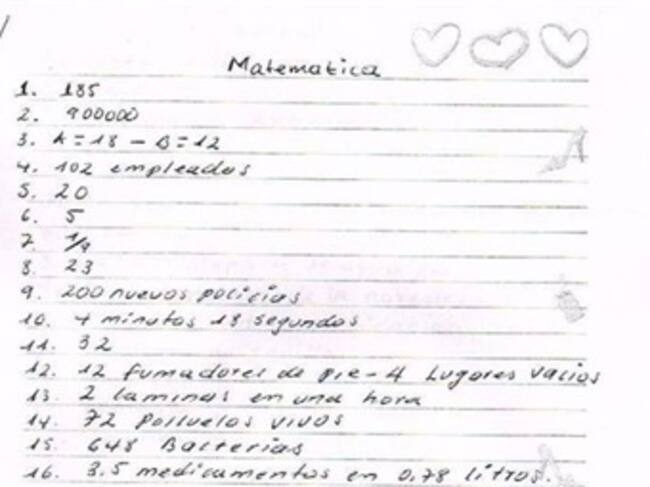 Matematica
1. 185
2. 900000
3. A = 18 - B = 12
4. 102 empleados
5. 20
6. 5
7. 1/9
8. 23
9. 200 nuevos policias
10. 4 minutos 18 segundos
11. 32
12. 12 fumadores de pie - 4 Lugares vacios
13. 2 laminas en una hora
14. 72 polluelos vivos
15. 648 Bacterias
16. 3.5 medicamentos en 0,78 litros.